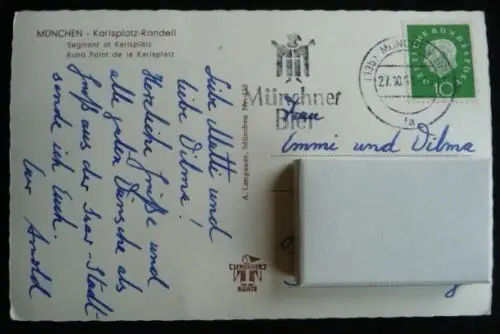 MÜNCHEN - Karlsplatz-Rondell
Segment of Karlsplatz
Rond Point de la Karlsplatz
Liebe Mutti und
liebe Dilma!
Herzliche Grüße und
alle guten Wünsche als
Gruß aus der Isar-Stadt
sende ich Euch.
Euer Arnold
A. Lengauer, München
Münchner
Bier
MÜNCHEN
27.10.
DEUTSCHE BUNDESPOST
10
Frau
Emmi und Dilma
KARTE